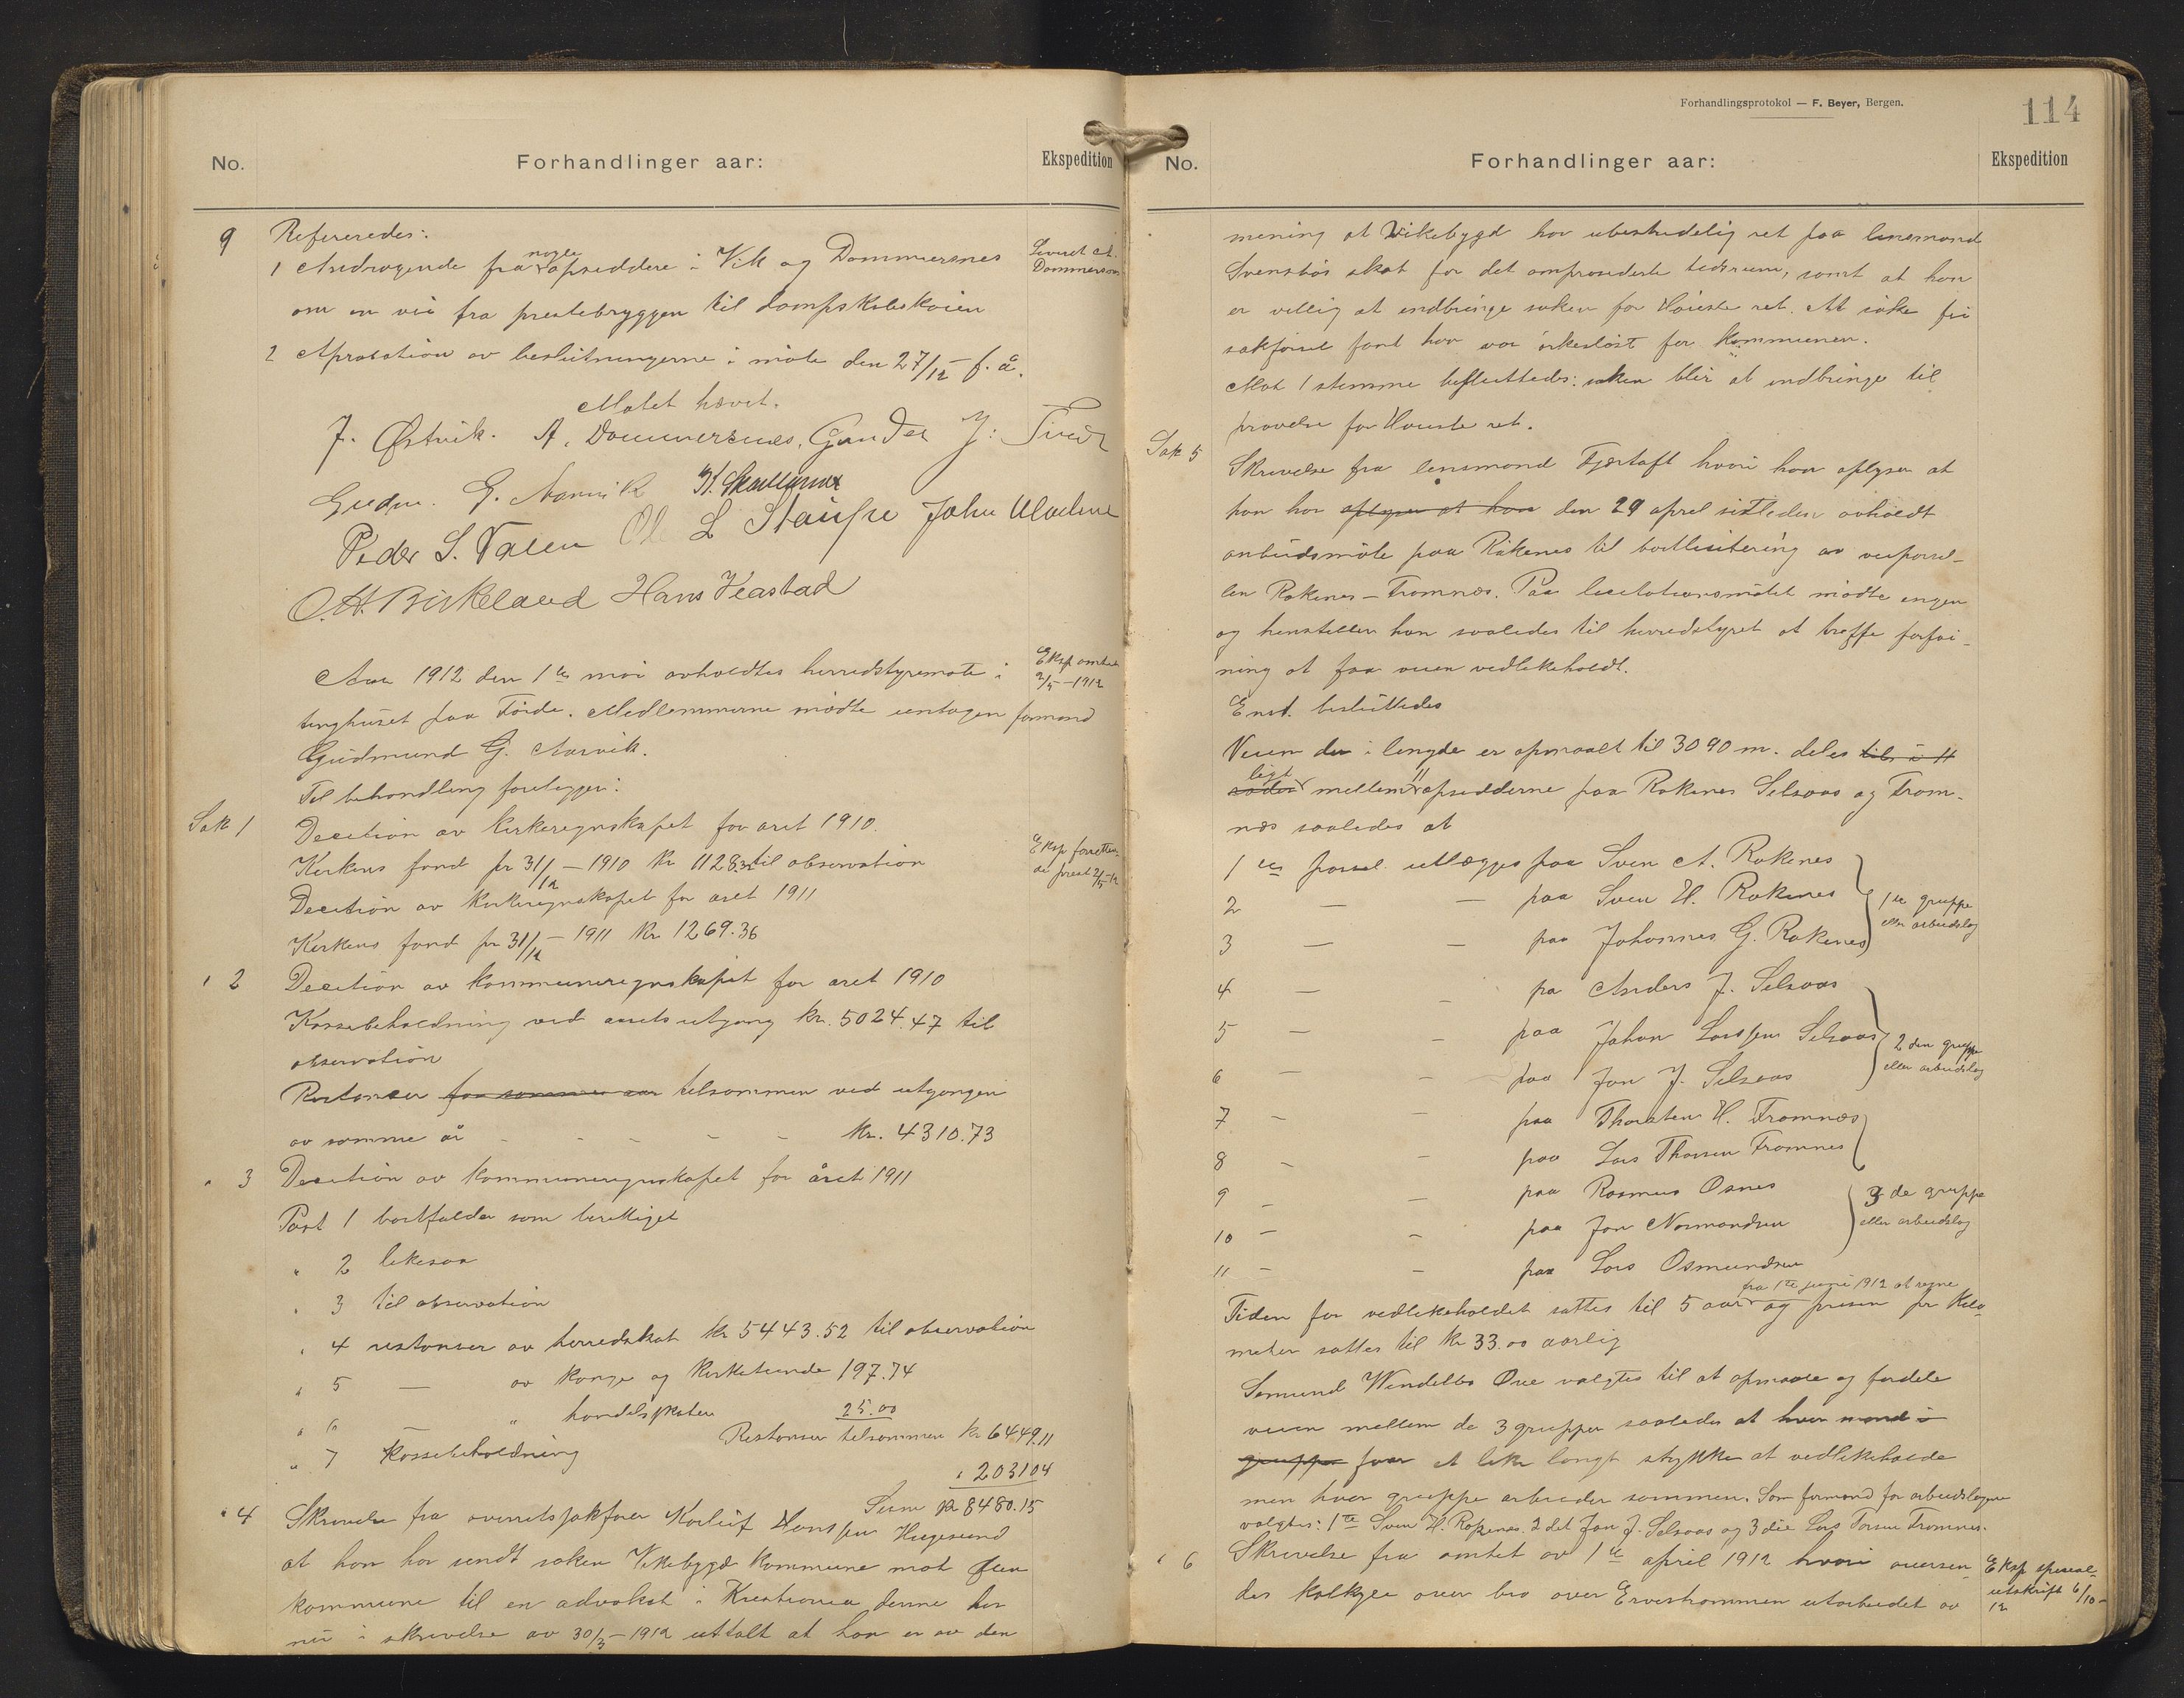 No. Forhandlinger aar: Ekspedition
9 Refereredes:
1 Andragende fra nogle opsiddere i Vik og Dommersnes
Leveret A.
Dommersnes
om en vei fra prestebryggen til dampskibskaien
2 Aprobation av beslutningerne i møte den 27/12 – f. å.
Møtet hævet.
J. Østvik. A. Dommersnes. Gunder J. Tveit
Gudm. G. Aarvik
Peder S. Valen Ole L Staupe John Uladne
O.H. Birkeland Hans Veastad
Aar 1912 den 1te mai avholdtes herredstyremøte i
Eksp amtet
2/5 – 1912
tinghuset paa Førde. Medlemmerne mødte undtagen formand
Gudmund G. Aarvik.
Til behandling foreligger:
Sak 1 Decition av kirkeregnskapet for aret 1910.
Kirkens fond pr 31/12 – 1910 kr 1128.32 til observation
Decition av kirkeregnskapet for aret 1911
Kirkens fond pr 31/12 – 1911 kr. 1269.36
" 2 Decition av kommuneregnskapet for aret 1910
Kassebeholdning ved aarets utgang kr. 5024.47 til
observation
Restanser for samme aar tilsammen ved utgangen
av samme år - - - - - kr. 4310.73
" 3 Decition av kommuneregnskapet for året 1911
Post 1 bortfalder som berettiget
" 2 likesaa
" 3 til observation
" 4 restanser av herredskat kr 5443.52 til observation
" 5 — av konge og kirketiende 197.74
" 6 — " handelsskatter 25.00
Restanser tilsammen kr 6449.11
" 7 Kassebeholdning
" 203104
Sum kr 8480.15
" 4 Skrivelse fra overretssakfører Hanssen Haugesund
at han har sendt saken Vikebygd kommune mot Ølen
kommune til en advokat i Kristiania denne har
nu i skrivelse av 30/3 – 1912 uttalt at han er av den
Forhandlingsprotokol — F. Beyer, Bergen.
114
No. Forhandlinger aar: Ekspedition
mening at Vikebygd har ubestridelig ret paa lensmand
Svensbøs skat for det omprosederte tidsrum, samt at han
er villig at indbringe saken for Høieste ret. At søke fri
sakførsel fant han var ørkesløst for kommunen.
Mot 1 stemme besluttedes: saken blir at indbringe til
prøvelse for Høieste ret.
Sak 5 Skrivelse fra lensmand Fjærtoft hvori han oplyser at
han har oplyser at han den 29 april sistleden avholdt
anbudsmøte paa Rakenes til bortlisitering av veiparsel-
len Rakenes – Tromnes. Paa licitationsmøtet mødte ingen
og henstiller han saaledes til herredstyret at træffe forføi-
ning at faa veien vedlikeholdt.
Enst. besluttedes
Veien der i lengde er opmaalt til 3090 m. deles til i 11
roder ligt mellem 11 opsidderne paa Rakenes Selsaas og Trom-
nes saaledes at
1te parsel utlægges paa Sven A. Rakenes
2 — — paa Sven H. Rakenes
3 — — paa Johannes G. Rakenes
1te gruppe
eller arbeidslag
4 — - pa Anders J. Selsaas
5 — - paa Johan Larssen Selsaas
6 — - paa Jon J. Selsaas
2den gruppe
eller arbeidslag
7 - - paa Thorsten H. Tromnæs
8 - - paa Lars Thorsen Tromnes
9 - - paa Rasmus Osnes
10 - - paa Jon Normandsen
3de gruppe
eller arbeidslag
11 - - paa Lars Osmundsen
fra 1te juni 1912 at regne
Tiden for vedlikeholdet sattes til 5 aar og prisen pr Kilo-
meter sattes til kr 33.00 aarlig
Samund Vendelbo Øve valgtes til at opmaale og fordele
veien mellem de 3 grupper saaledes at hver mand i
gruppe faar et like langt stykke at vedlikeholde
men hver gruppe arbeider sammen. Som formand for arbeidslagene
valgtes: 1te Sven H. Rakenes. 2det Jon J. Selsaas og 3die Lars Torsen Tromnes.
" 6 Skrivelse fra amtet av 1te april 1912 hvori oversen-
Eksp spesial-
utskrift 6/10 –
12
des kalkyle over bro over Ervestrømmen utarbeidet av